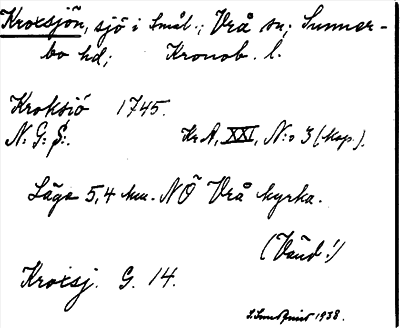 Kroxsjön, sjö i Smål.; Vrå sn; Sunner-
bo hd; Kronob. l.
Kroksiö 1745.
N: G: S:. Kr A, XXI, N:o 3 (Map.).
Läge 5,4 km. NÖ Vrå kyrka.
(Vänd!)
Kroxsj. G. 14.
1938.